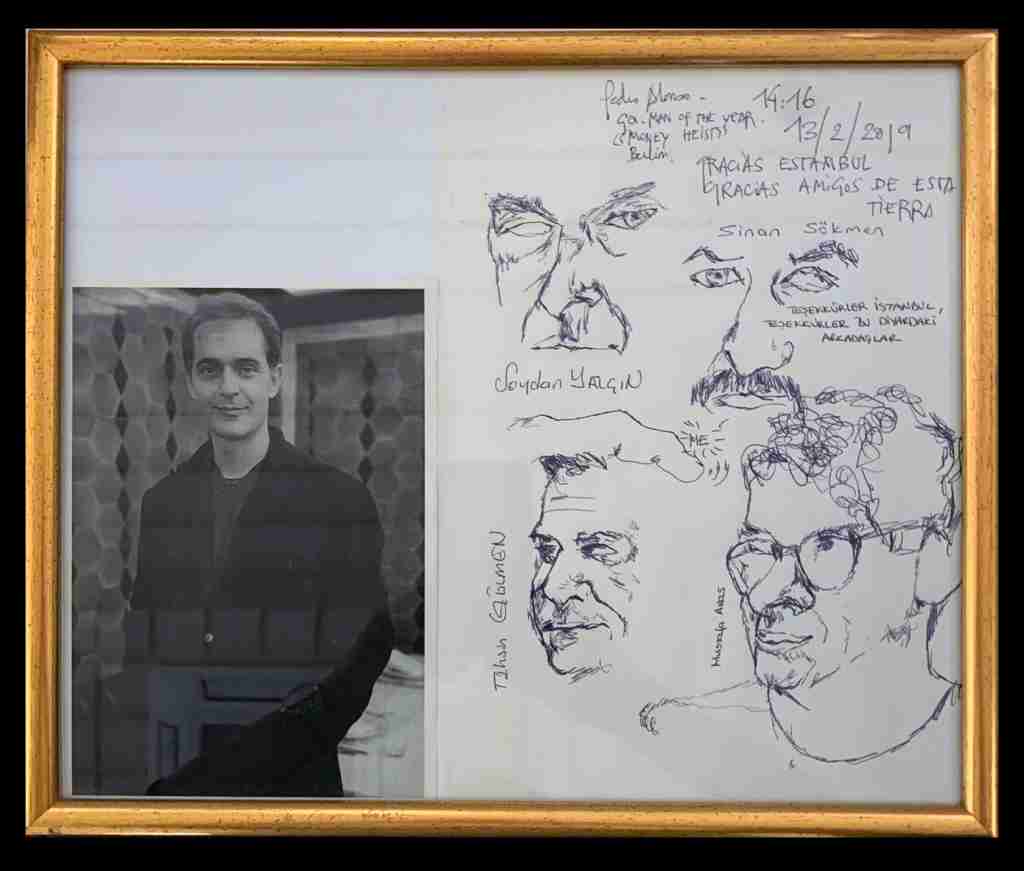 Pedro Alonso - 14:16
GQ. MAN OF THE YEAR. 13/2/2019
MONEY HEIST
Berlin.
GRACIAS ESTAMBUL
GRACIAS AMIGOS DE ESTA
TIERRA
Sinan Sökmen
TEŞEKKÜRLER İSTANBUL,
TEŞEKKÜRLER BU DİYARDAKİ
ARKADAŞLAR
Soydan YALÇIN
ME
GÖLMEN
Mustafa